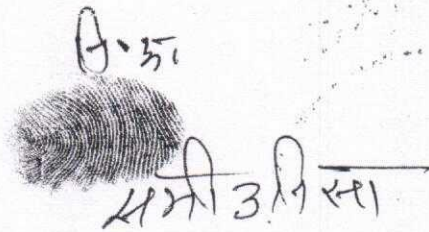 नि॰ अं
समीउनिसा